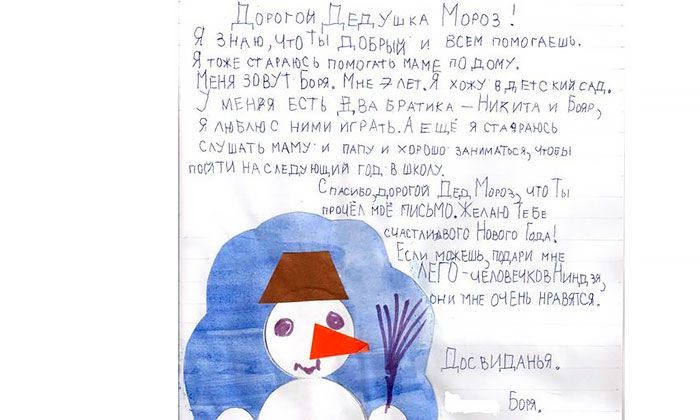 Дорогой Дедушка Мороз!
Я знаю, что Ты добрый и всем помогаешь.
Я тоже стараюсь помогать маме по дому.
Меня зовут Боря. Мне 7 лет. Я хожу в детский сад.
У меня есть два братика – Никита и Бояр,
я люблю с ними играть. А ещё я стараюсь
слушать маму и папу и хорошо заниматься, чтобы
пойти на следующий год в школу.
Спасибо, дорогой Дед Мороз, что Ты
прочёл моё письмо. Желаю Тебе
счастливого Нового Года!
Если можешь, подари мне
ЛЕГО-человечков Ниндзя,
они мне очень нравятся.
Досвиданья.
Боря.